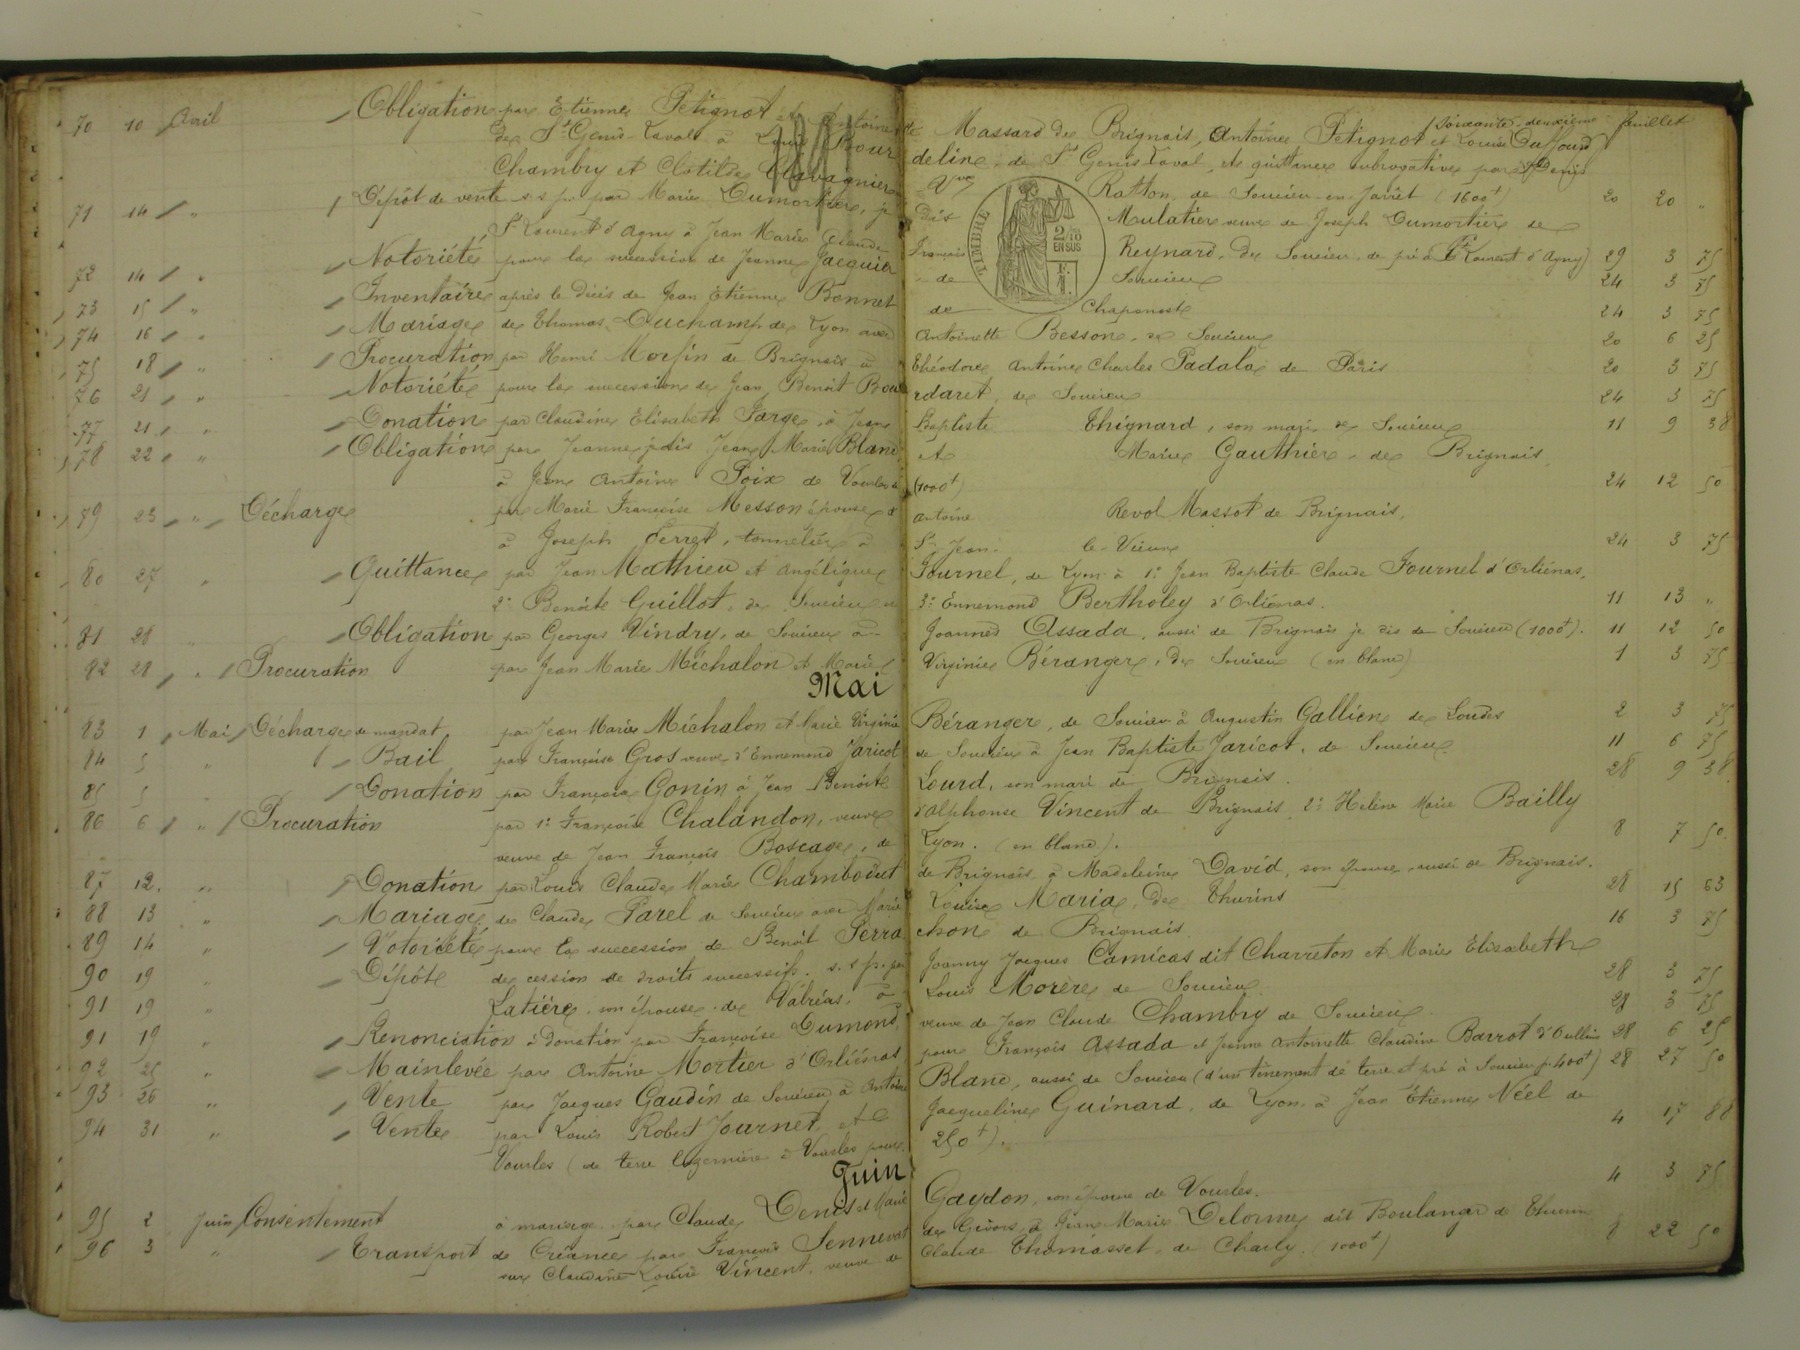 Soixante-deuxième feuillet
70 10 Avril Obligation par Etienne Petignot et Antoinette Massard de Brignais, Antoine Petignot et Louise
de St Genis-Laval à Louis Bourdeline de St Genis Laval, et quittance subrogative par Denis
Chambry et Clotilde Chavagnier Vve Ratton, de Soucieu-en-Jarret (1600f) 20 20 "
71 14 " Dépôt de vente s. s. p. par Marie Dumortier, je dis Mulatier veuve de Joseph Dumortier de
St Laurent d'Agny à Jean Marie Claude François Reynard, de Soucieu, de pré à St Laurent d'Agny) 29 3 75
72 14 " Notoriété pour la succession de Jeanne Jacquier de Soucieu 24 3 75
73 15 " Inventaire après le décès de Jean Etienne Bonnet de Chaponost 24 3 75
74 16 " Mariage de Thomas Duchamp de Lyon avec Antoinette Besson, de Soucieu 20 6 25
75 18 " Procuration par Henri Morfin de Brignais à Théodore Antoine Charles Padalo de Paris 20 3 75
76 21 " Notoriété pour la succession de Jean Benoit Bourdaret, de Soucieu 24 3 75
77 21 " Donation par Claudine Elisabeth Farge, à Jean Baptiste Thignard, son mari de Soucieu 11 9 38
78 22 " Obligation par Jeanne jedis Jean Marie Blanc et Marie Gauthier de Brignais,
à Jean Antoine Poix de Vourles (1000f) 24 12 50
79 23 " Décharge par Marie Françoise Messon épouse d'Antoine Revol Massot de Brignais,
à Joseph Ferret, tonnelier à St Jean-le-Vieux 24 3 75
80 27 " Quittance par Jean Mathieu et Angélique Fournel, de Lyon à 1° Jean Baptiste Claude Fournel d'Orliénas,
2° Benoite Guillot, de Soucieu 3° Ennemond Bertholey d'Orliénas. 11 13 "
81 28 " Obligation par Georges Vindry, de Soucieu à Joannès Assada, aussi de Brignais je dis de Soucieu (1000f). 11 12 50
82 28 " Procuration par Jean Marie Michalon et Marie Virginie Béranger, de Soucieu (en blanc) 1 3 75
Mai
83 1 Mai Décharge de mandat par Jean Marie Michalon et Marie Virginie Béranger, de Soucieu à Augustin Gallien de Loudes 2 3 75
84 5 " Bail par Françoise Gros veuve d'Ennemond Jaricot de Soucieu à Jean Baptiste Jaricot, de Soucieu. 11 6 75
85 5 " Donation par Françoise Gonin à Jean Benoite Lourd, son mari de Brignais. 28 9 38
86 6 " Procuration par 1° Françoise Chalandon, veuve d'Alphonse Vincent de Brignais, 2° Hélène Marie Bailly
veuve de Jean François Boscage, de Lyon. (en blanc). 8 7 50
87 12 " Donation par Louis Claude Marie Chambodut de Brignais à Madeleine David, son épouse, aussi de Brignais. 28 15 63
88 13 " Mariage de Claude Parel de Soucieu avec Marie Louise Maria, de Thurins 16 3 75
89 14 " Notoriété pour la succession de Benoit Perrachon de Brignais.
90 19 " Dépôt de cession de droits successifs. s. s. p. par Joanny Jacques Camicas dit Charreton et Marie Elisabeth
91 19 " Latière, son épouse, de Valréas, à Louis Morère de Soucieu. 28 3 75
91 19 " Renonciation à donation par Françoise Dumond, veuve de Jean Claude Chambry de Soucieu 28 3 75
92 25 " Mainlevée par Antoine Mortier d'Orliénas pour François Assada et Jeanne Antoinette Claudine Barrot d'Oullins 28 6 25
93 26 " Vente par Jacques Gaudin de Soucieu, à Antoine Blanc, aussi de Soucieu (d'un tènement de terre et pré à Soucieu p. 400f) 28 27 50
94 31 " Vente par Louis Robert Journet, et Jacqueline Guinard, de Lyon à Jean Étienne Néel de
Vourles (de terre luzernière à Vourles pour 250f). 4 17 88
Juin
95 2 Juin Consentement à mariage par Claude Denis et Marie Gaydon, son épouse de Vourles. 4 3 75
96 3 " Transport de Créance par François Sennevat de Givors, à Jean Marie Delorme dit Boulanger de Thurin
sur Claudine Louise Vincent, veuve de Claude Thomasset, de Charly. (1000f) 8 22 50
TIMBRE
2/10
EN SUS